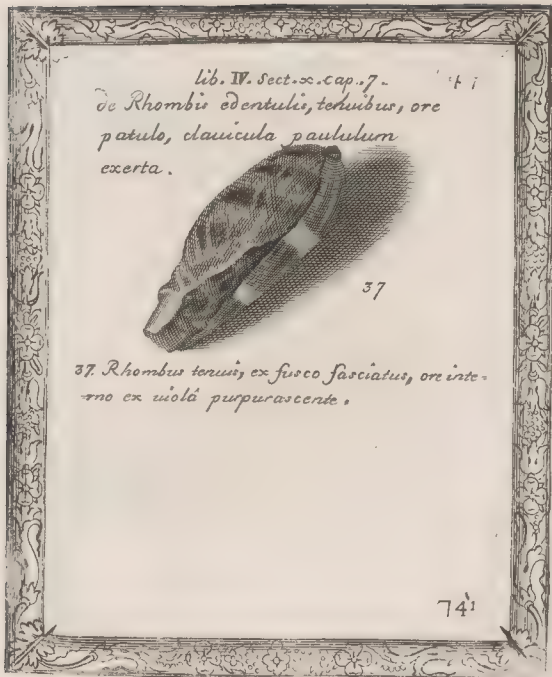 lib. IV. Sect. x. cap. 7.
de Rhombis edentulis, tenuibus, ore
patulo, clauicula paululum
exerta.
37
37. Rhombus tenuis, ex fusco fasciatus, ore inte=
rno ex uiolâ purpurascente.
741